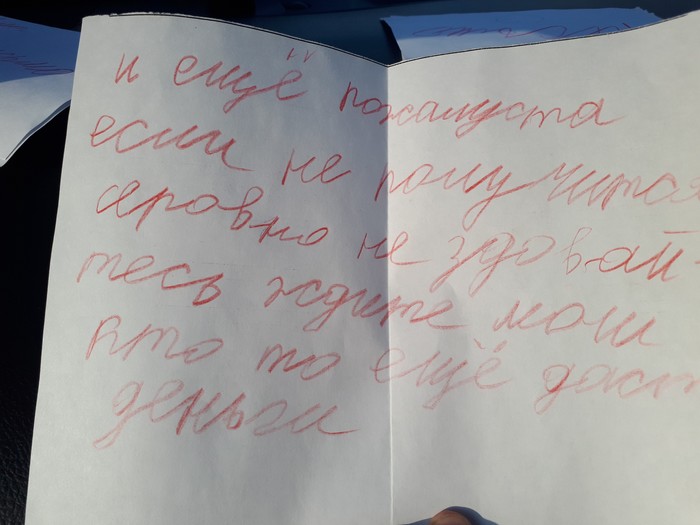 и ещё пожалуста
если не получится
серовно не здовай-
тесь ждите мош
кто то ещё даст
деньги